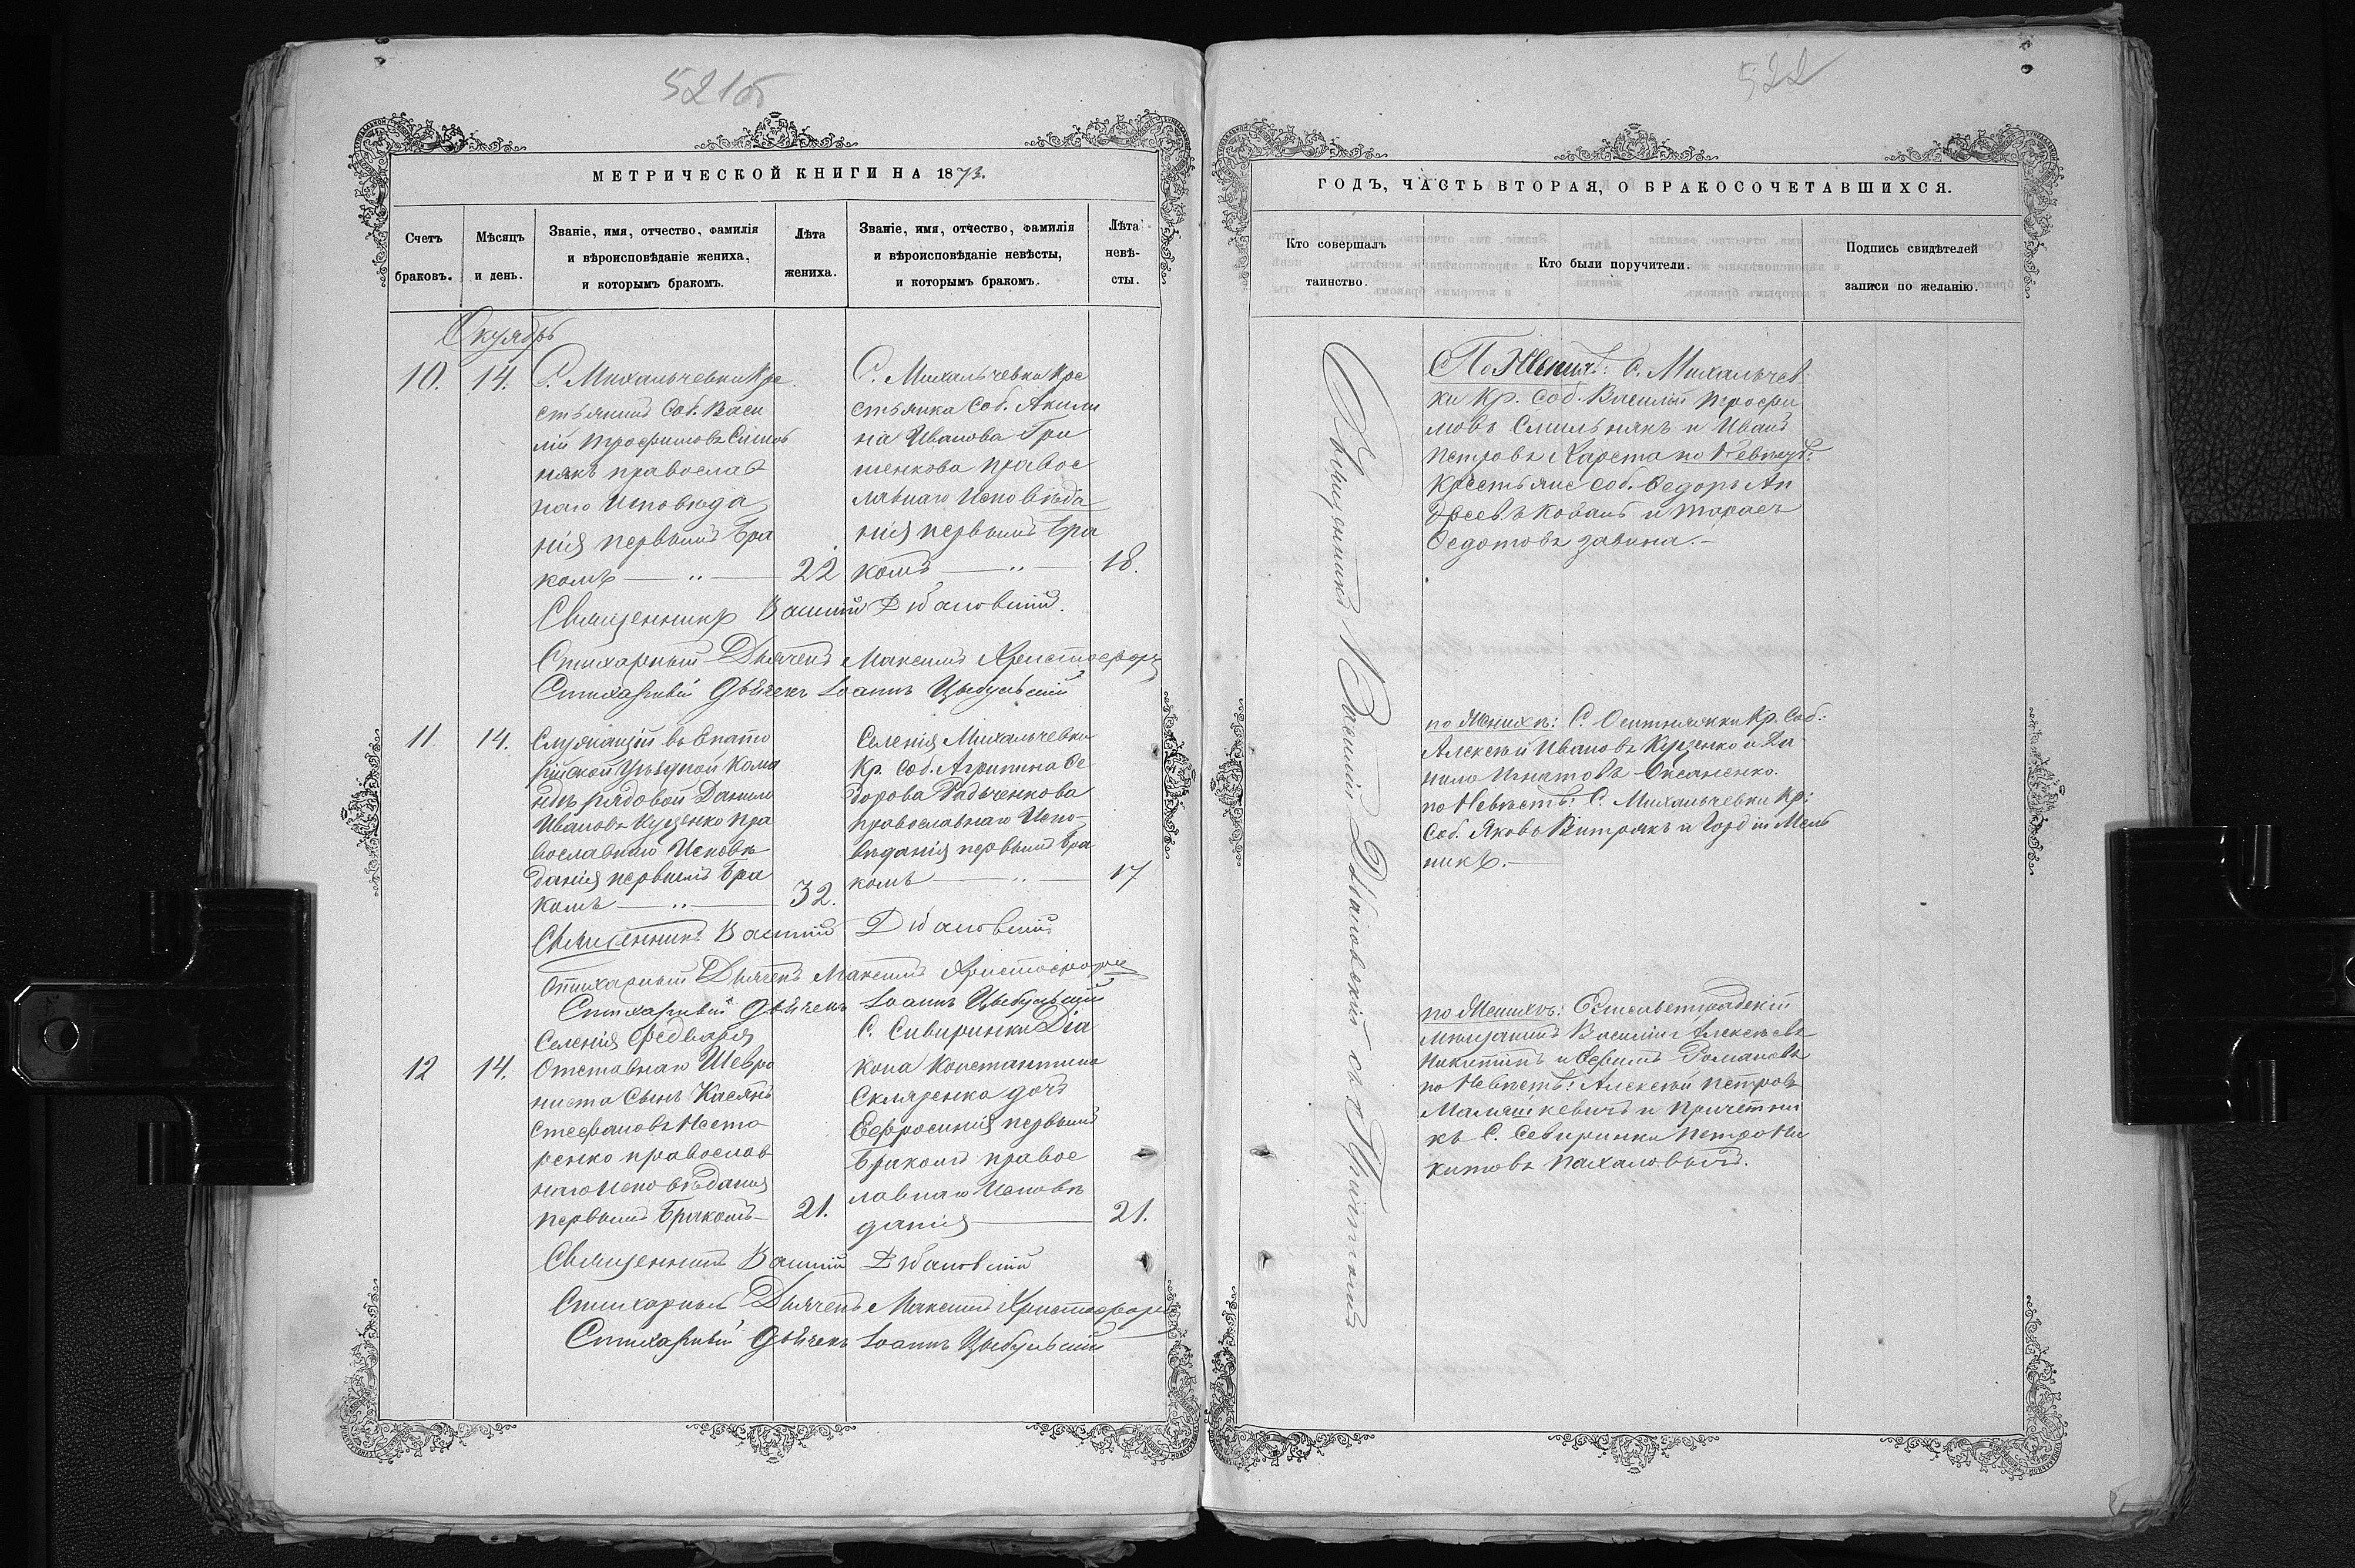 521б
МЕТРИЧЕСКОЙ КНИГИ НА 1873.
Счетъ браковъ.
Мѣсяцъ и день.
Званіе, имя, отчество, фамилія
и вѣроисповѣданіе жениха,
и которымъ бракомъ.
Лѣта жениха.
Званіе, имя, отчество, фамилія
и вѣроисповѣданіе невѣсты,
и которымъ бракомъ.
Лѣта невѣ-
сты.
Октябрь
10. 14.
С. Михальчевки Кре
стьянинъ Соб. Васи
лій Трофимовъ Смиль
някъ православ
наго Исповѣда
нія первымъ Бра
комъ — „ — 22
С. Михальчевки Кре
стьянка Соб. Акили
на Иванова Гри
шенкова правос
лавнаго Исповѣда
нія первымъ Бра
комъ — „ — 18.
Священникъ Василій Дбановскій.
Стихарный Дьячекъ Максимъ Христофор
Стихарный Дьячекъ Іоаннъ Цыбульскій
11. 14.
Служащій въ
Уѣздной Кома
ндѣ рядовой Данило
Ивановъ Куценко пра
вославнаго Исповѣ
данія первымъ Бра
комъ — „ — 32.
Селенія Михальчевки
Кр. Соб. Агрипина Ѳе
дорова Радченкова
православнаго Испо-
вѣданія первымъ Бра
комъ — „ — 17
Священникъ Василій Дбановскій
Стихарный Дьячекъ Максимъ Христофор
Стихарный Дьячекъ Іоаннъ Цыбульскій
12 14.
Селенія Федвара
Отставнаго Шевро
ниста Сынъ Касянъ
Стефановъ Несто
ренко православ
наго Исповѣданія
первымъ Бракомъ — 21.
С. Сивиринки Діа
кона Константина
Скляренка дочь
Евфросинія первымъ
Бракомъ правос
лавнаго Исповѣ
данія — 21.
Священникъ Василій Дбановскій
Стихарный Дьячекъ Максимъ Христофор
Стихарный Дьячекъ Іоаннъ Цыбульскій
522
ГОДЪ, ЧАСТЬ ВТОРАЯ, О БРАКОСОЧЕТАВШИХСЯ.
Кто совершалъ
таинство.
Кто были поручители.
Подпись свидѣтелей
записи по желанію.
Священникъ Василій Дбановскій съ Причтомъ
По Жених: С. Михальчев
ки Кр. Соб. Василій Трофи
мовъ Смильнякъ и Иванъ
Петровъ Карета по Невѣст:
Крестьяне Соб. Ѳедоръ Ан
дреевъ Кобанъ и Тарасъ
Ѳедотовъ
по Женихѣ: С. Кр. Соб:
Алексѣй Ивановъ Куценко и Да
нило Игнатовъ Оксаненко.
по Невѣстѣ: С. Михальчевки Кр:
Соб. Яковъ Витрякъ и Гордій Мель
никъ.—
по Женихѣ: Елисаветградскій
мѣщанинъ Василій Алексѣевъ
Никитинъ и Ѳефимъ Романовъ
по Невѣстѣ: Алексѣй Петровъ
и Причетни
къ С. Севиринки Петро Ни
китовъ